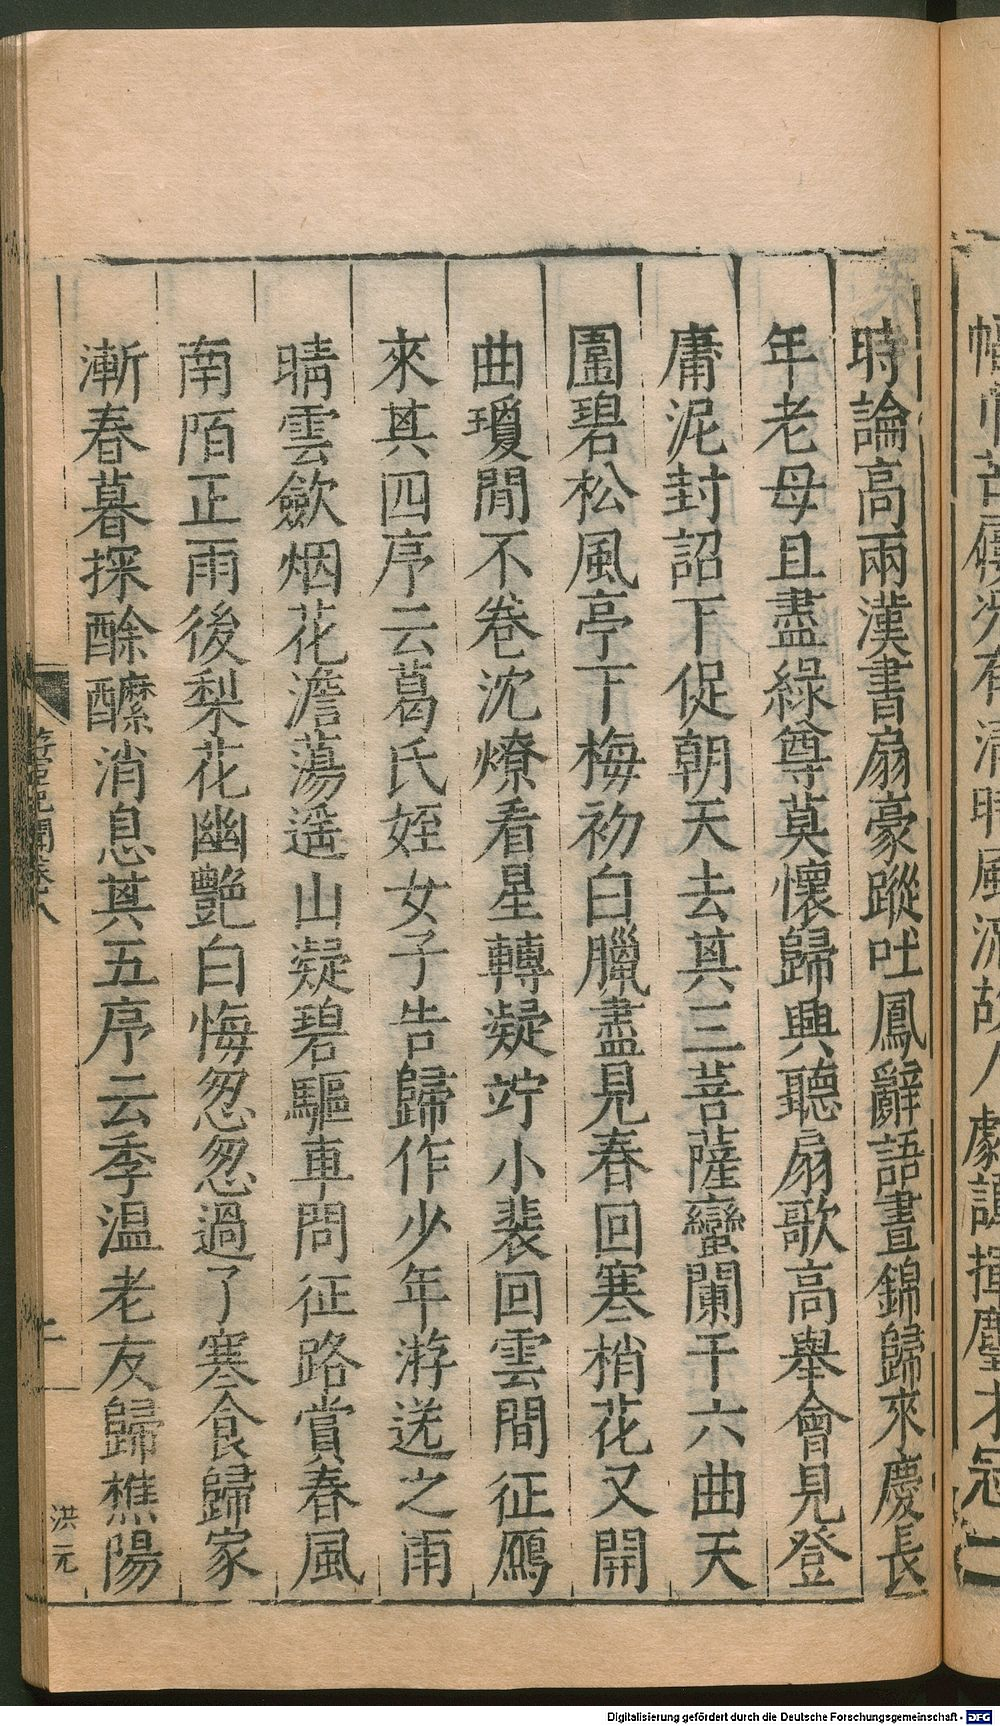 時論高兩漢書扇豪蹤吐鳳辭語晝錦歸來慶長
年老母且盡綠尊莫懷歸興聽扇歌高舉會見登
庸泥封詔下促朝天去其三菩薩蠻闌干六曲天
圍碧松風亭下梅初白臘盡見春回寒梢花又開
曲瓊閒不卷沈燎看星轉凝竚小裴回雲間征鴈
來其四序云葛氏姪女子告歸作少年游送之雨
晴雲歛烟花澹蕩遥山凝碧驅車問征路賞春風
南陌正雨後梨花幽艷白悔怱怱過了寒食歸家
漸春暮探酴醾消息其五序云季温老友歸樵陽
洪元
Digitalisierung gefördert durch die Deutsche Forschungsgemeinschaft - DFG